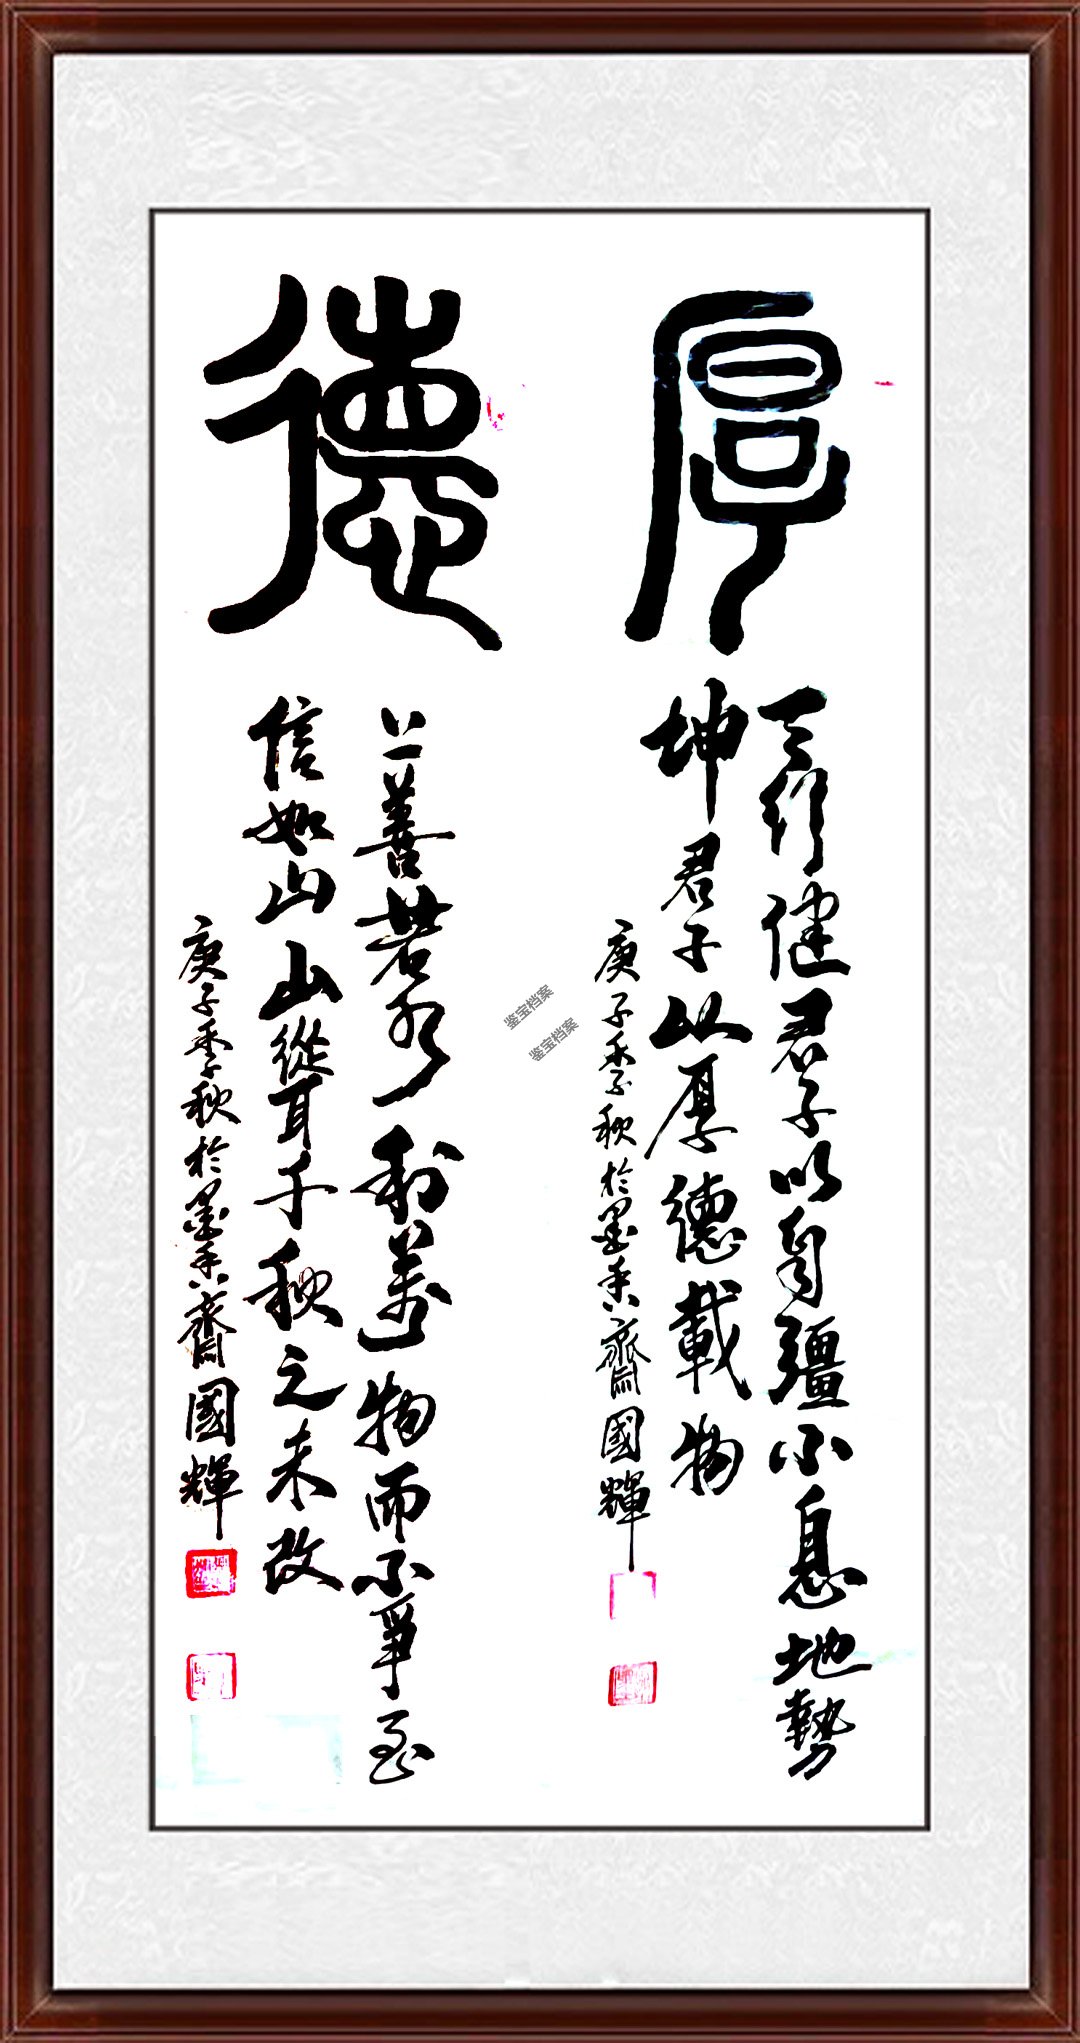 厚
天行健君子以自彊不息地勢
坤君子以厚德載物
庚子季秋於墨香齋國輝
德
上善若水利萬物而不爭至
信如山山聳千秋之未改
庚子季秋於墨香齋國輝
鉴宝档案
鉴宝档案